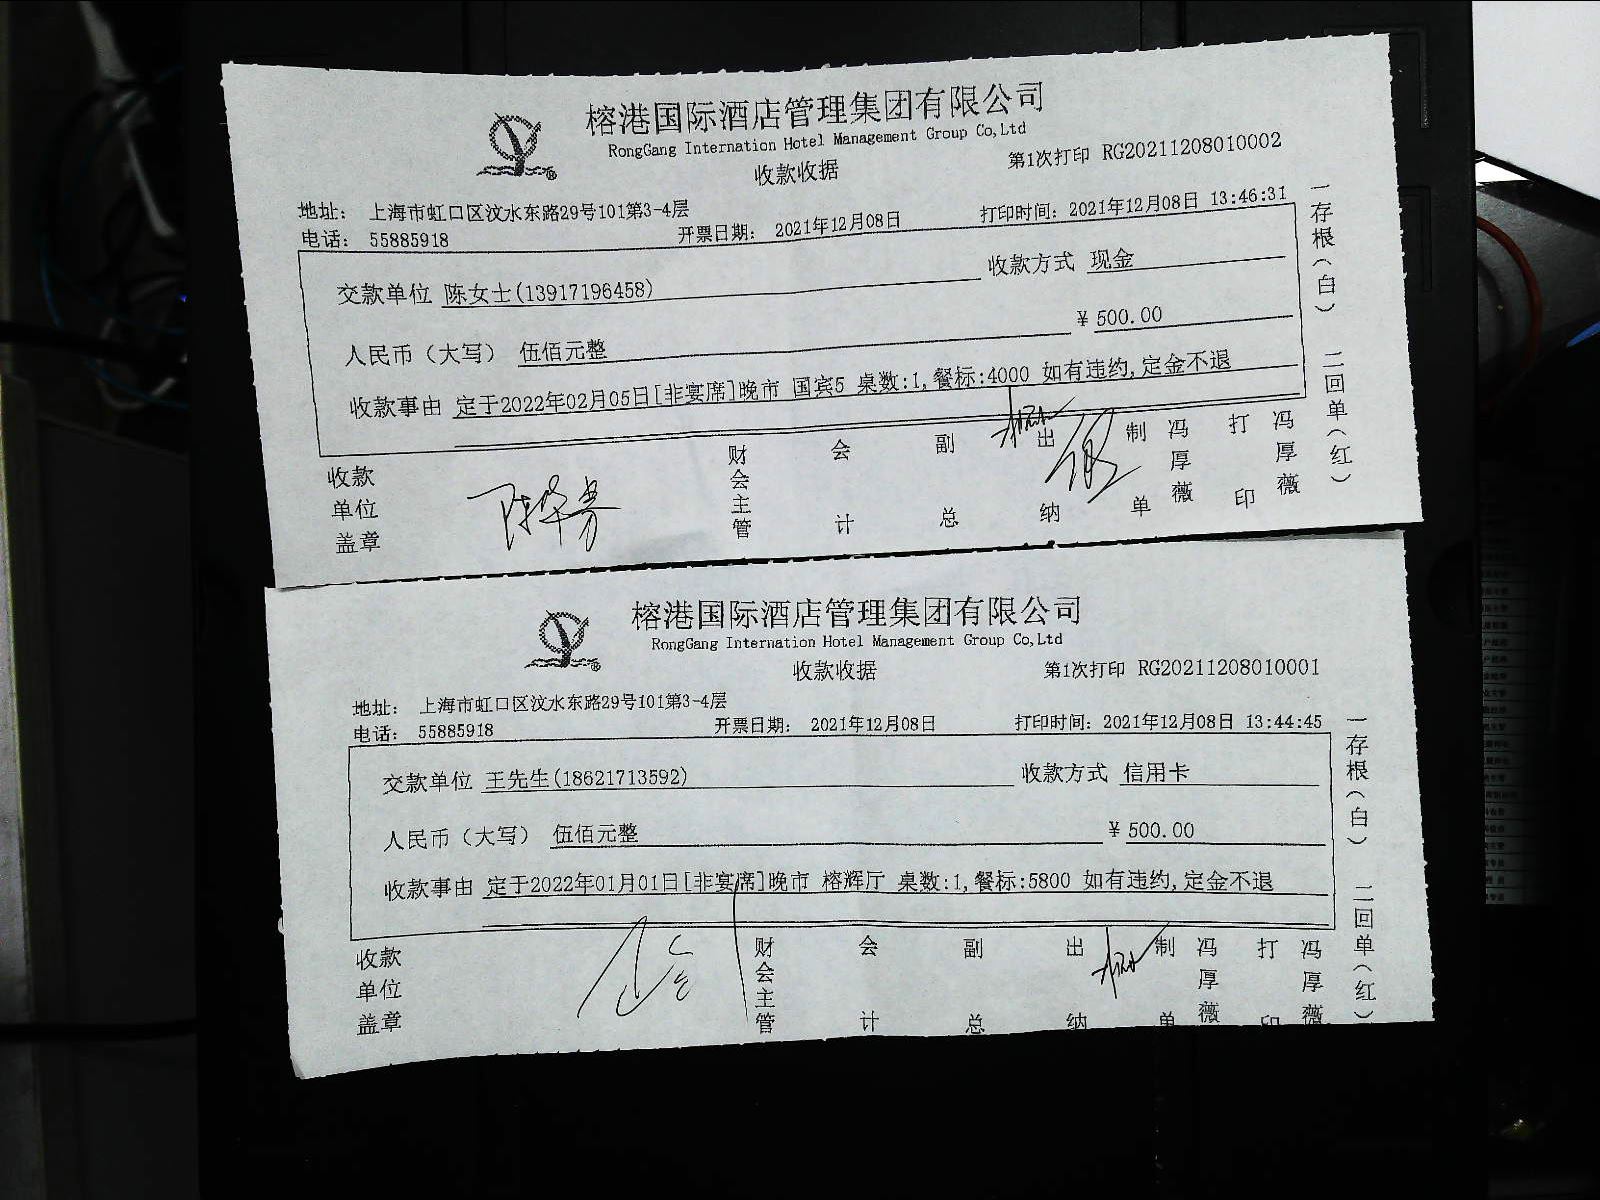 榕港国际酒店管理集团有限公司
RongGang Internation Hotel Management Group Co,Ltd
收款收据
第1次打印 RG20211208010002
地址： 上海市虹口区汶水东路29号101第3-4层
电话： 55885918 开票日期： 2021年12月08日 打印时间：2021年12月08日 13:46:31
交款单位 陈女士(13917196458) 收款方式 现金
人民币（大写） 伍佰元整 ￥500.00
收款事由 定于2022年02月05日[非宴席]晚市 国宾5 桌数:1,餐标:4000 如有违约,定金不退
收款单位盖章 财会主管 会计 副总 出纳 制单 冯厚薇 打印 冯厚薇
一存根（白） 二回单（红）
榕港国际酒店管理集团有限公司
RongGang Internation Hotel Management Group Co,Ltd
收款收据
第1次打印 RG20211208010001
地址： 上海市虹口区汶水东路29号101第3-4层
电话： 55885918 开票日期： 2021年12月08日 打印时间：2021年12月08日 13:44:45
交款单位 王先生(18621713592) 收款方式 信用卡
人民币（大写） 伍佰元整 ￥500.00
收款事由 定于2022年01月01日[非宴席]晚市 榕辉厅 桌数:1,餐标:5800 如有违约,定金不退
收款单位盖章 财会主管 会计 副总 出纳 制单 冯厚薇 打印 冯厚薇
一存根（白） 二回单（红）